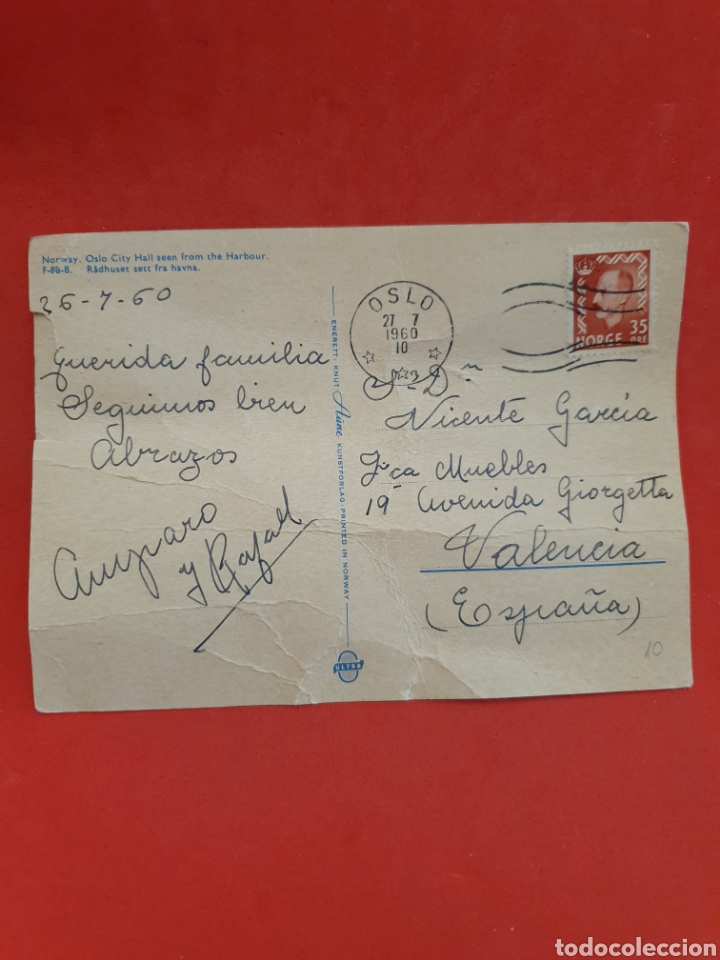 Norway. Oslo City Hall seen from the Harbour.
F-88-8. Rådhuset sett fra havna.
26-7-60
Querida familia
Seguimos bien
Abrazos
Amparo
y Rafael
ENERETT: KNUT Aune KUNSTFORLAG - PRINTED IN NORWAY
ULTRA
OSLO
27 7
1960
10
NORGE
35
ØRE
Vicente García
Fca Muebles
19 Avenida Giorgetta
Valencia
(España)
10
todocoleccion